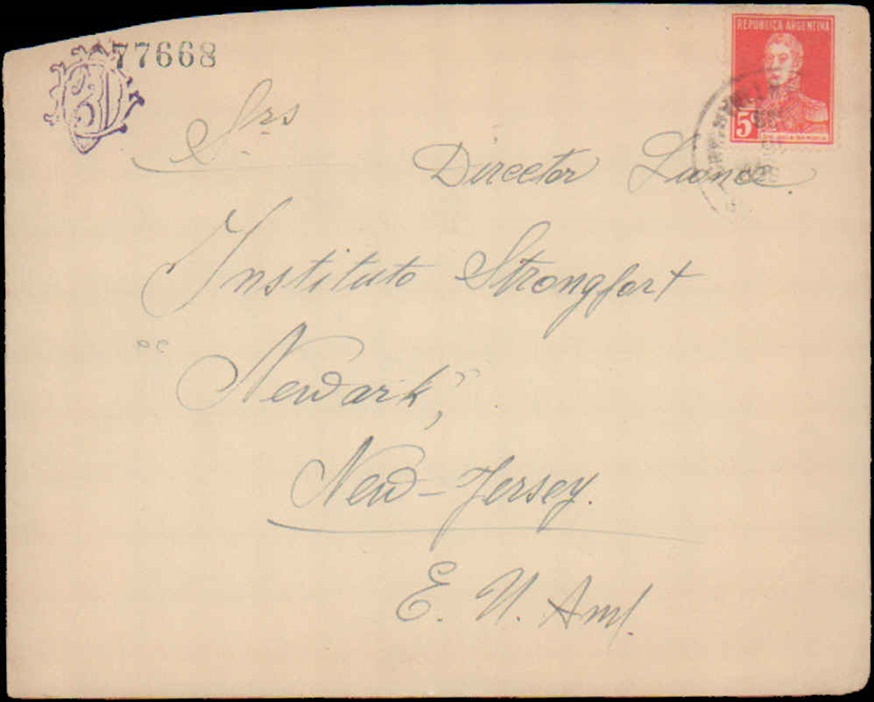 77668
REPUBLICA ARGENTINA
5
Srs
Director Liones
Instituto Strongfort
"Newark",
New-Jersey.
E. U. Aml.